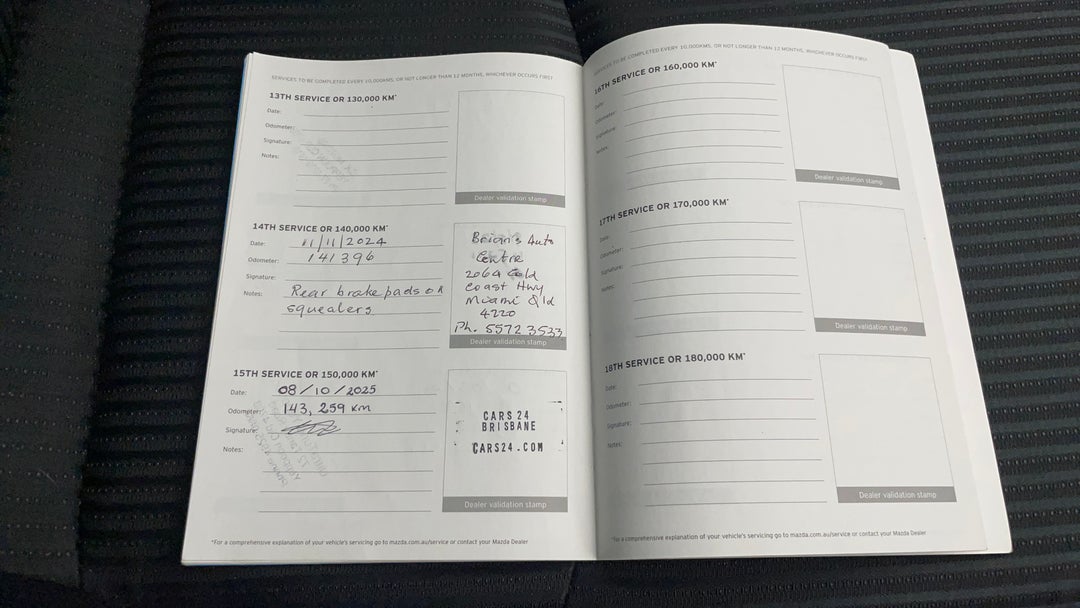 SERVICES TO BE COMPLETED EVERY 10,000KMS, OR NOT LONGER THAN 12 MONTHS, WHICHEVER OCCURS FIRST
13TH SERVICE OR 130,000 KM*
Date:
Odometer:
Signature:
Notes:
Dealer validation stamp
14TH SERVICE OR 140,000 KM*
Date: 11/11/2024
Odometer: 141396
Signature:
Notes: Rear brake pads on
squealers
Brian's Auto
Centre
2064 Gold
Coast Hwy
Miami Qld
4220
Ph. 55723533
Dealer validation stamp
15TH SERVICE OR 150,000 KM*
Date: 08/10/2025
Odometer: 143,259 km
Signature:
Notes:
CARS 24
BRISBANE
CARS24.COM
Dealer validation stamp
*For a comprehensive explanation of your vehicle's servicing go to mazda.com.au/service or contact your Mazda Dealer
SERVICES TO BE COMPLETED EVERY 10,000KMS, OR NOT LONGER THAN 12 MONTHS, WHICHEVER OCCURS FIRST
16TH SERVICE OR 160,000 KM*
Date:
Odometer:
Signature:
Notes:
Dealer validation stamp
17TH SERVICE OR 170,000 KM*
Date:
Odometer:
Signature:
Notes:
Dealer validation stamp
18TH SERVICE OR 180,000 KM*
Date:
Odometer:
Signature:
Notes:
Dealer validation stamp
*For a comprehensive explanation of your vehicle's servicing go to mazda.com.au/service or contact your Mazda Dealer